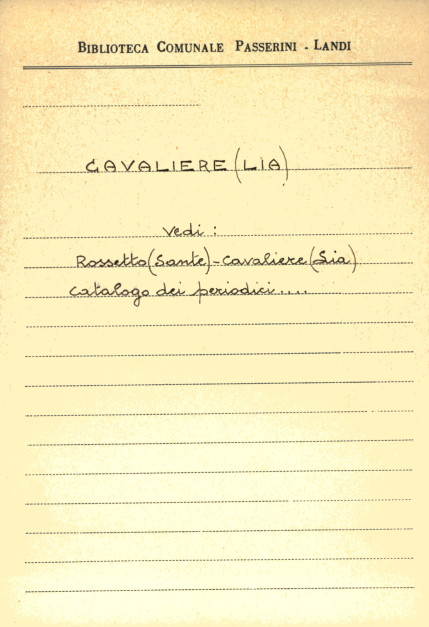 BIBLIOTECA COMUNALE PASSERINI - LANDI
CAVALIERE (LIA)
Vedi :
Rossetto (Sante) - Cavaliere (Lia)
Catalogo dei periodici ....